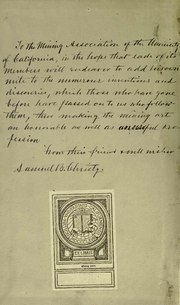 To the Mining Association of the University
of California, in the hope that each of its
members will endeavor to add his own
mite to the numerous inventions and
discoveries, which those who have gone
before have passed on to us who follow
them, thus making the mining art
an honorable as well as useful pro-
fession
from their friend & well wisher
Samuel B. Christy
EX LIBRIS